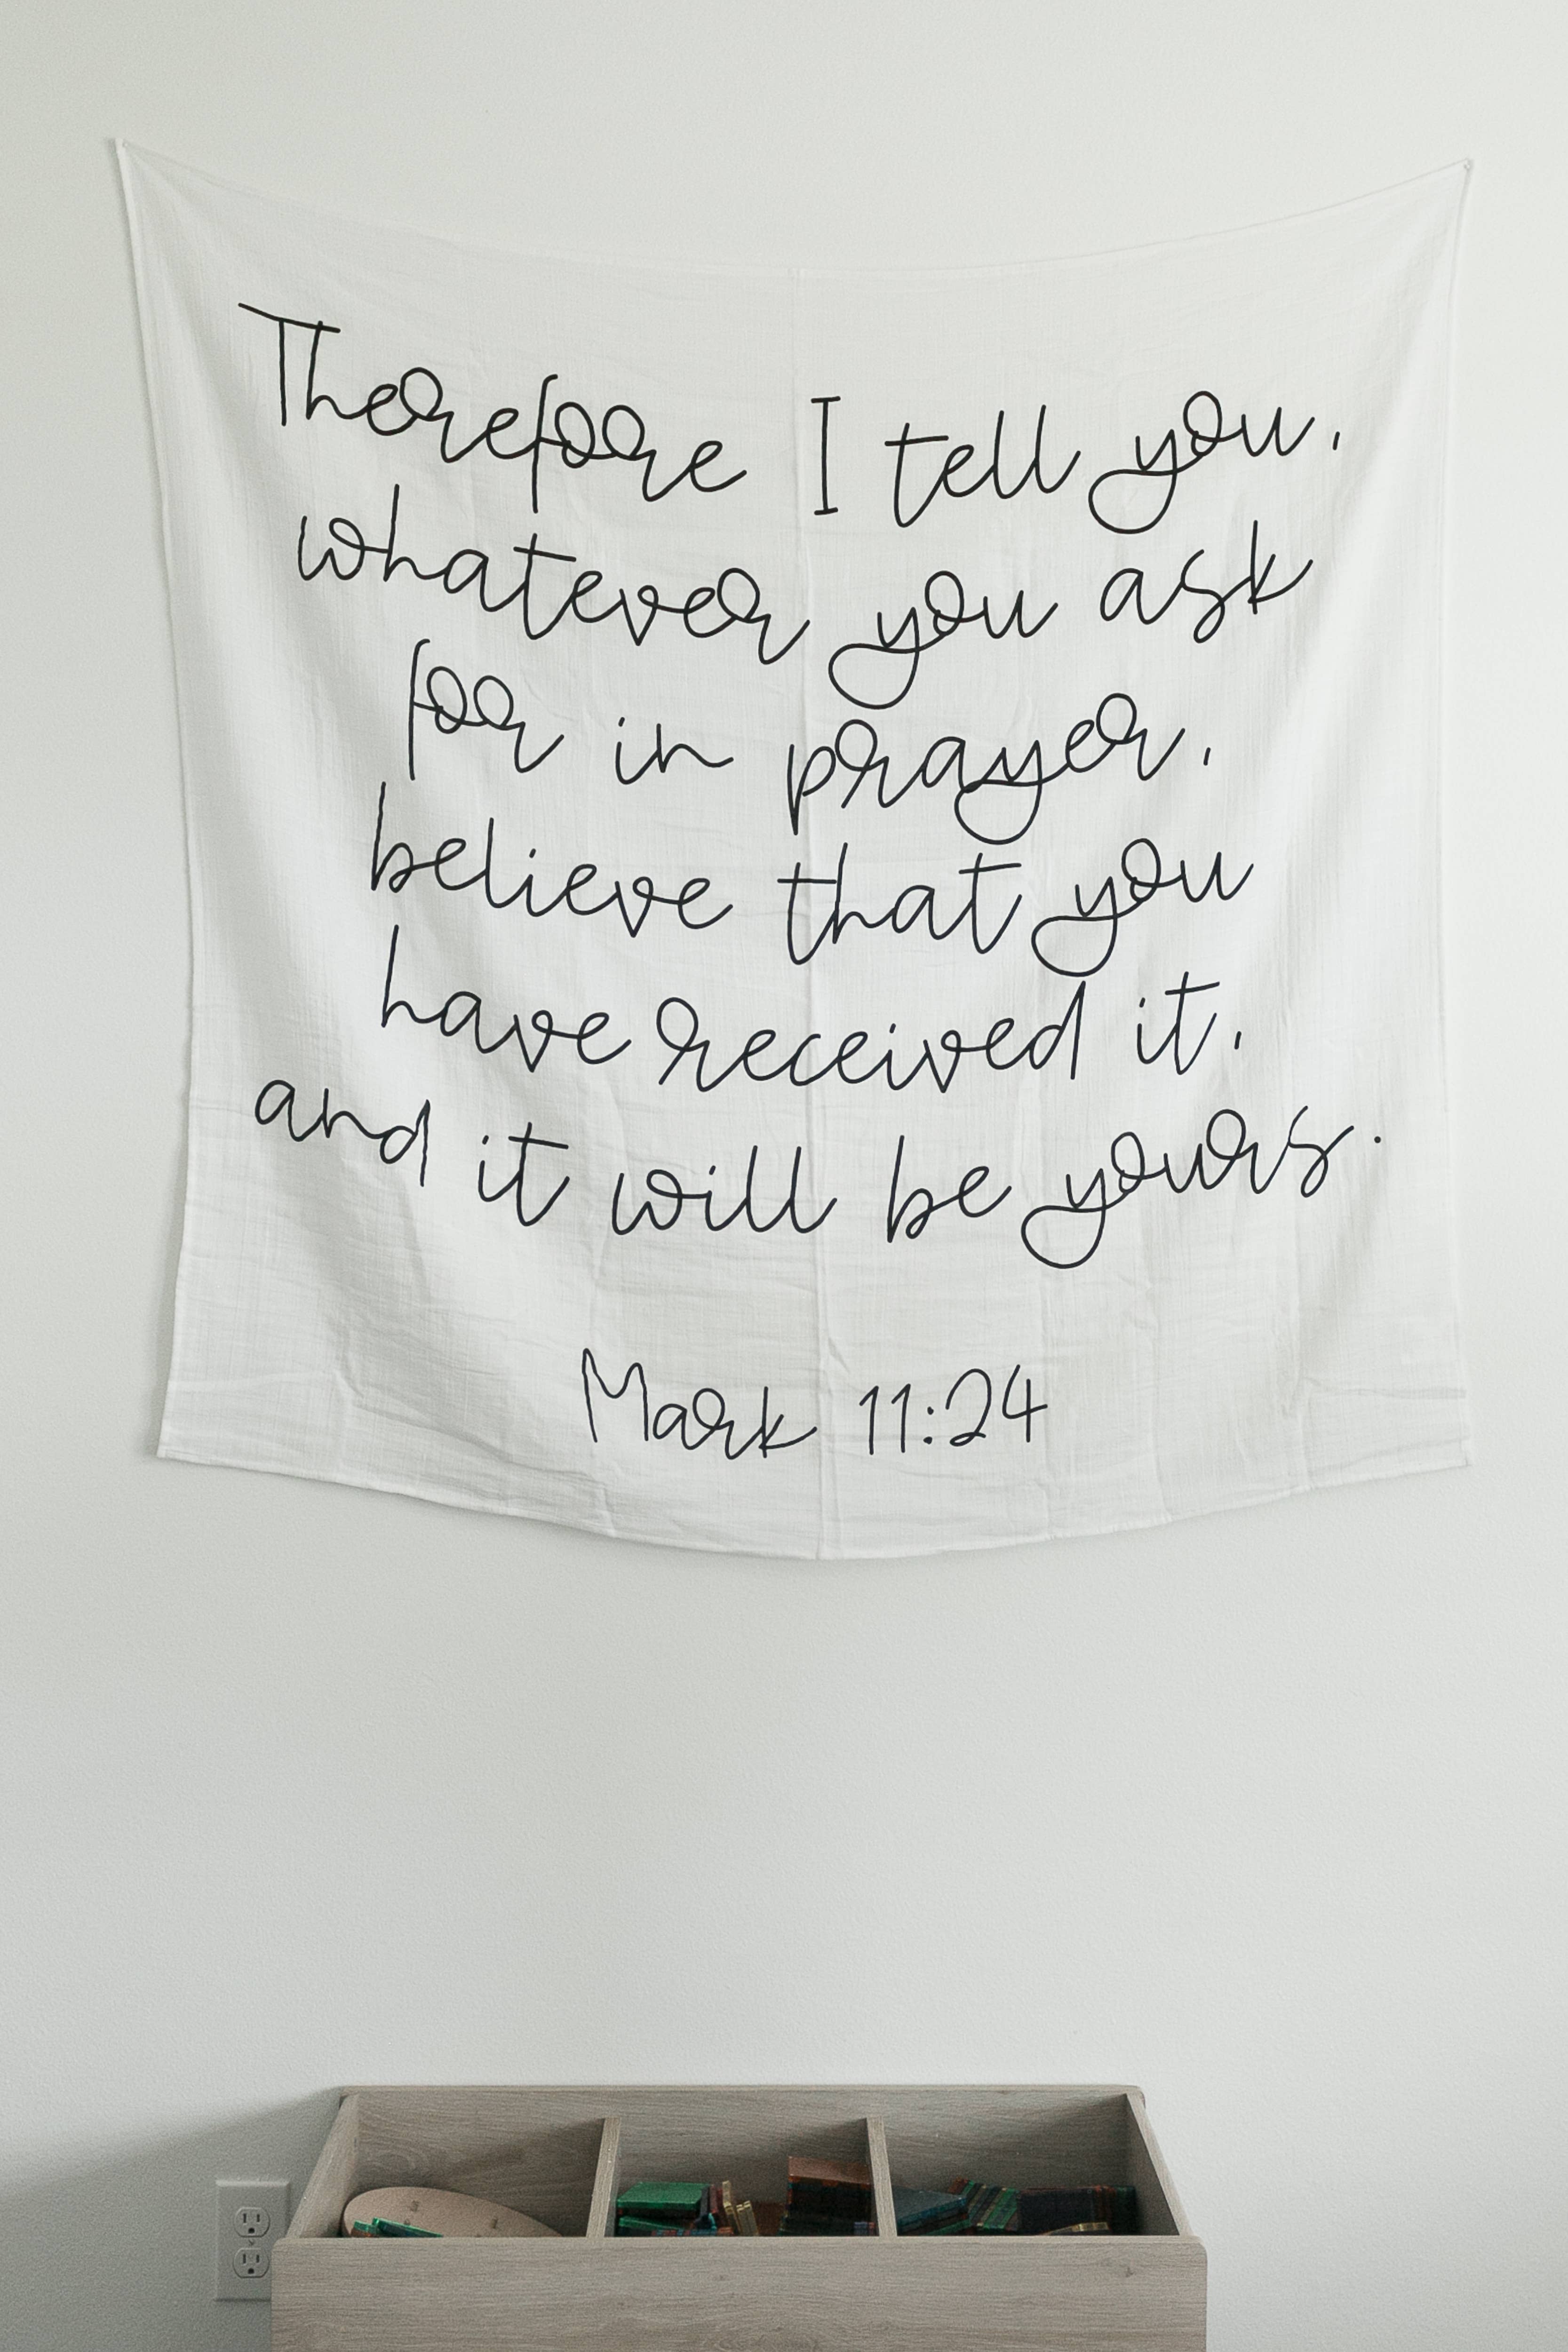 Therefore I tell you,
whatever you ask
for in prayer,
believe that you
have received it,
and it will be yours.
Mark 11:24